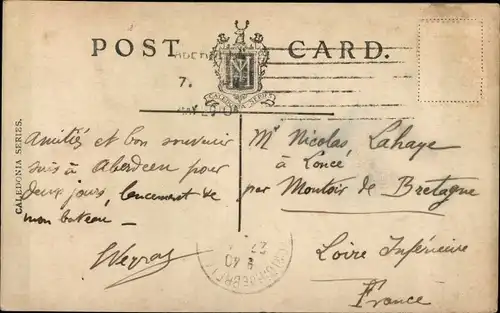 POST CARD.
ABERD
7.
CALEDONIA SERIES
CALEDONIA SERIES.
Amitiés et bon souvenir
suis à Aberdeen pour
deux jours, lancement de
mon bateau —
Mr Nicolas Lahaye
à Loncé
par Montoir de Bretagne
Loire Inférieure
France